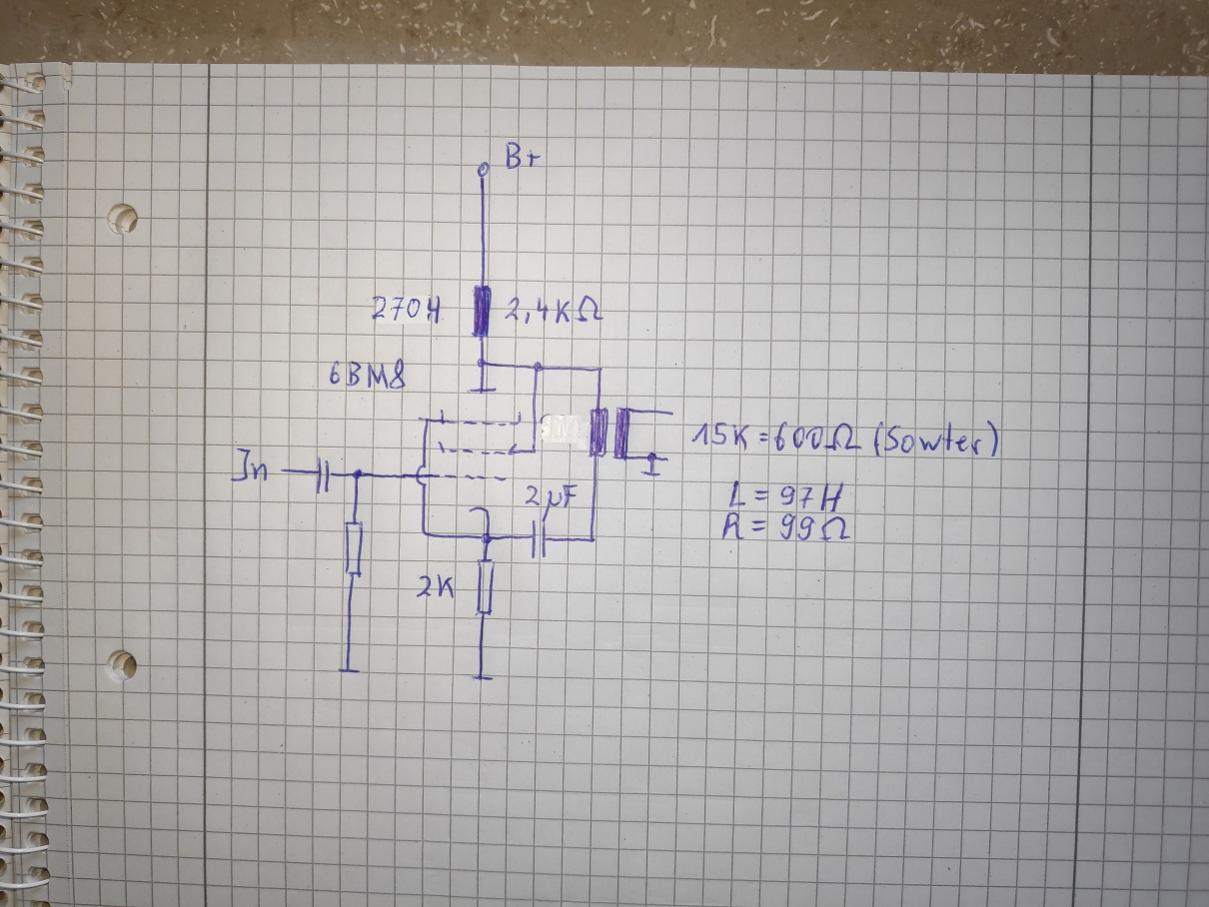 B+
270H 2,4KΩ
6BM8
In
15K=600Ω (Sowter)
L = 97H
R = 99Ω
2µF
2K